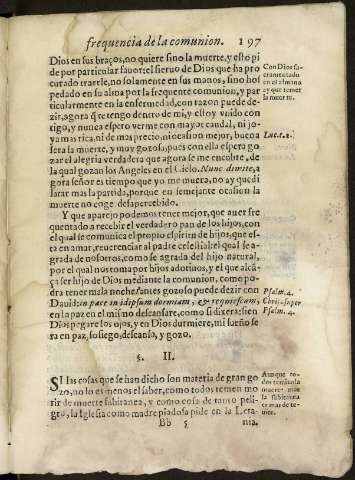 frequencia de la comunion. 197
Dios en sus braços, no quiere sino la muerte, y esto pi
de por particular fauor: el sieruo de Dios que ha pro
curado traerle, no solamente en sus manos, sino hos
pedado en su alma por la frequente comunion, y par
ticularmente en la enfermedad, con razon puede de-
zir, agora q̃ te tengo dentro de mi, y estoy vnido con
tigo, y nunca espero verme con mayor caudal, ni jo-
ya mas rica, ni de mas precio, ni ocasion mejor, buena
sera la muerte, y muy gozoso, pues con ella espero go
zar el alegria verdadera que agora se me encubre, de
la qual gozan los Angeles en el Cielo. Nunc dimitte, a
gora señor es tiempo que yo me muera, no ay que di
latar mas la partida, porque en semejante ocasion la
muerte no coge desapercebido.
Y que aparejo podemos tener mejor, que auer fre
quentado a recibir el verdadero pan de los hijos, con
el qual se comunica el propio espiritu de hijos, que es-
ra en amar, reuerenciar al padre celestial: el qual se a-
grada de nosotros, como se agrada del hijo natural,
por el qual nos toma por hijos adotiuos, y el que alcã-
ça ser hijo de Dios mediante la comunion, como po-
dra tener mala noche? antes gozoso puede dezir con
Dauid: in pace in idipsum dormiam, & requiescam,
en la paz en el mismo descansare, como si dixera: si en
Dios pegare los ojos, y en Dios durmiere, mi sueño se
ra en paz, sosiego, descanso, y gozo.
§. II.
SI las cosas que se han dicho son materia de gran go
zo, no lo es menos el saber, como todos temen mo
rir de muerte subitanea, y como cosa de tanto peli-
gro, la Iglesia como madre piadosa pide en la Leta-
Bb 5 nia.
Con Dios sa-
cramentado
en el alma no
ay que temer
la muerte.
Luc. c. 2.
Psalm. 4.
Chris. super
Psalm. 4.
Aunque to-
dos
muerte
la subitanea